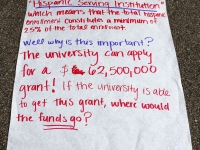 "Hispanic Serving Institution"
which means that the total hispanic
enrollment constitutes a minimum of
25% of the total enrollment.
Well why is this important?
The university can apply
for a $ 62,500,000
grant! If the university is able
to get this grant, where would
the funds go?